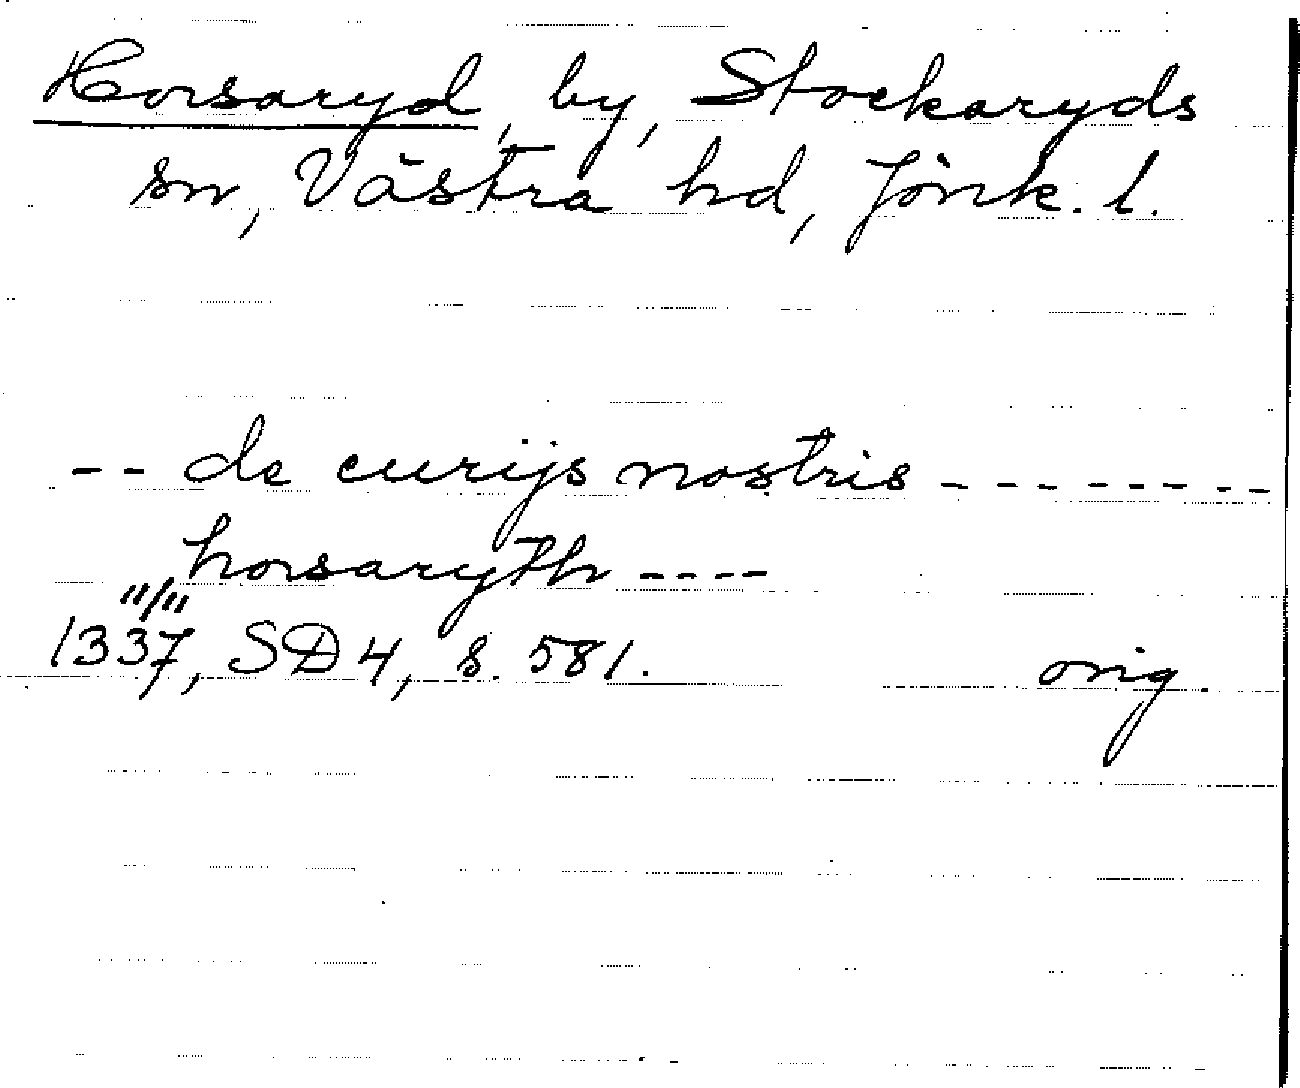 Horsaryd, by, Stockaryds
sn, Västra hd, Jönk. l.
-- de curijs nostris --------
horsaryth ----
11/11
1337, SD 4, s. 581. orig.